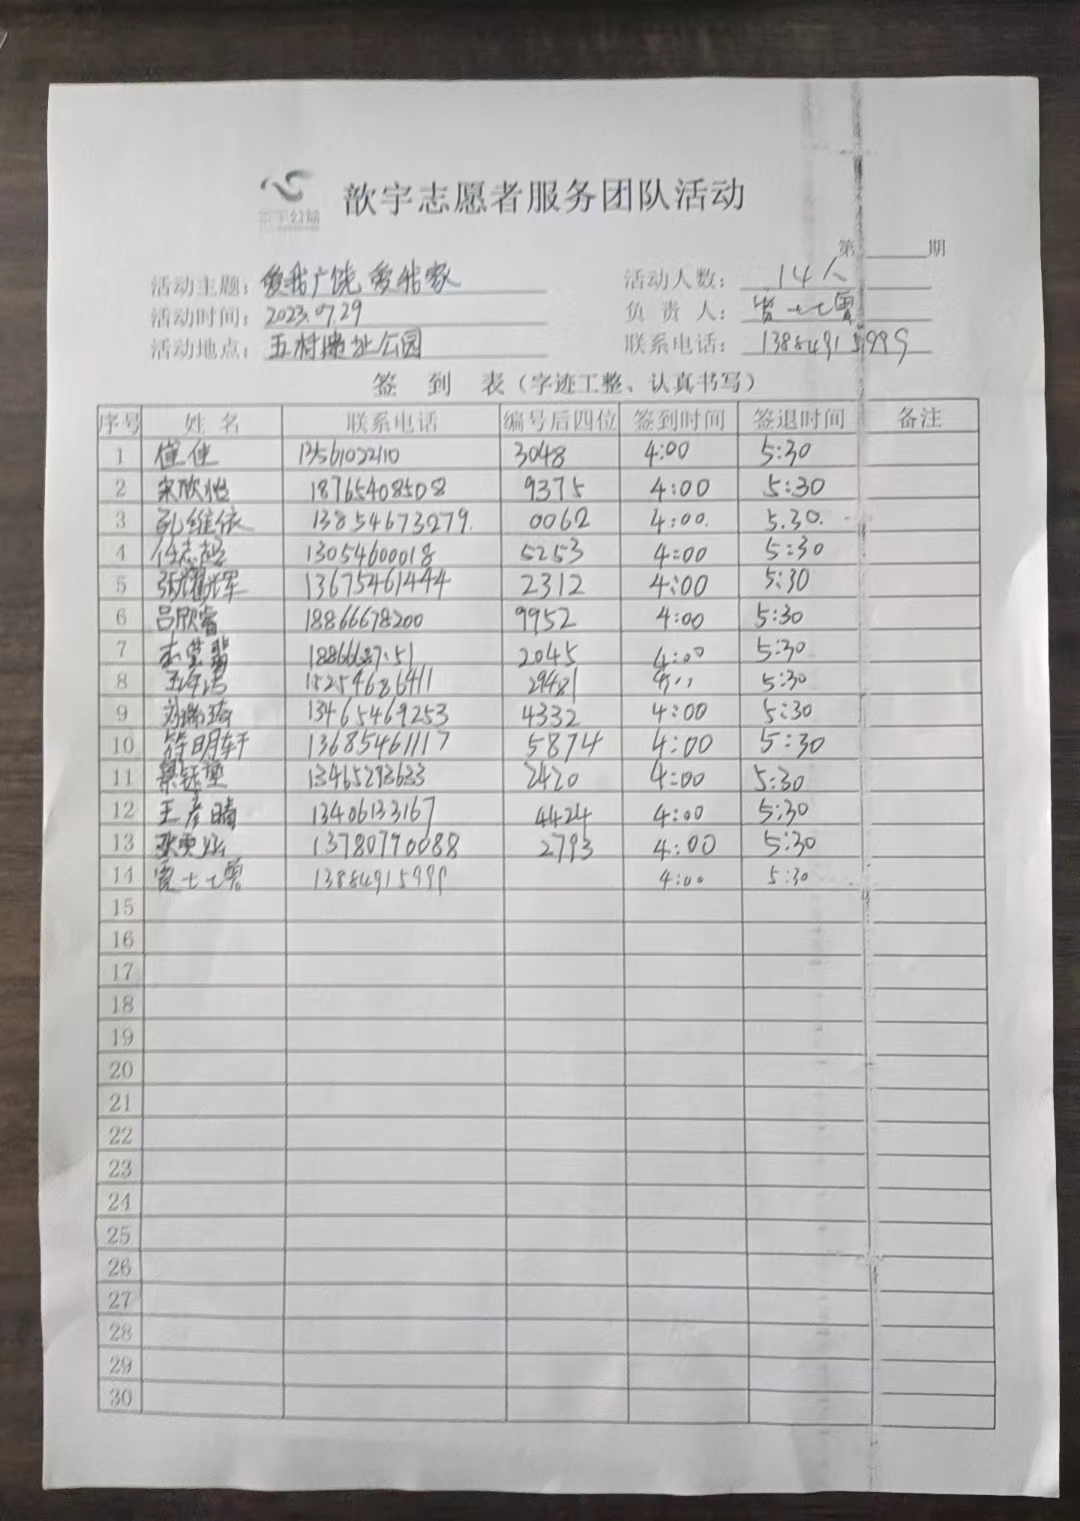 歆宇公益
歆宇志愿者服务团队活动
第 期
活动主题: 爱我广饶 爱我家 活动人数: 14人
活动时间: 2023.07.29 负责人: 贾士七曾
活动地点: 五村遗址公园 联系电话: 13884915999
签 到 表(字迹工整、认真书写)
序号 姓名 联系电话 编号后四位 签到时间 签退时间 备注
1 崔佳 13561022110 3048 4:00 5:30
2 宋欣怡 18765408508 9375 4:00 5:30
3 孔维依 13854673279. 0062 4:00. 5.30.
4 任志超 13054600018 5253 4:00 5:30
5 张耀军 13675461444 2312 4:00 5:30
6 吕欣睿 18866678200 9952 4:00 5:30
7 2045 4:00 5:30
8 15254686411 29481 5:30
9 刘瑞琦 13465469253 4332 4:00 5:30
10 符明轩 13685461117 5874 4:00 5:30
11 13465293633 2420 4:00 5:30
12 王彦晴 13406133167 4424 4:00 5:30
13 13780770088 2793 4:00 5:30
14 13884915999 4:00 5:30
15
16
17
18
19
20
21
22
23
24
25
26
27
28
29
30